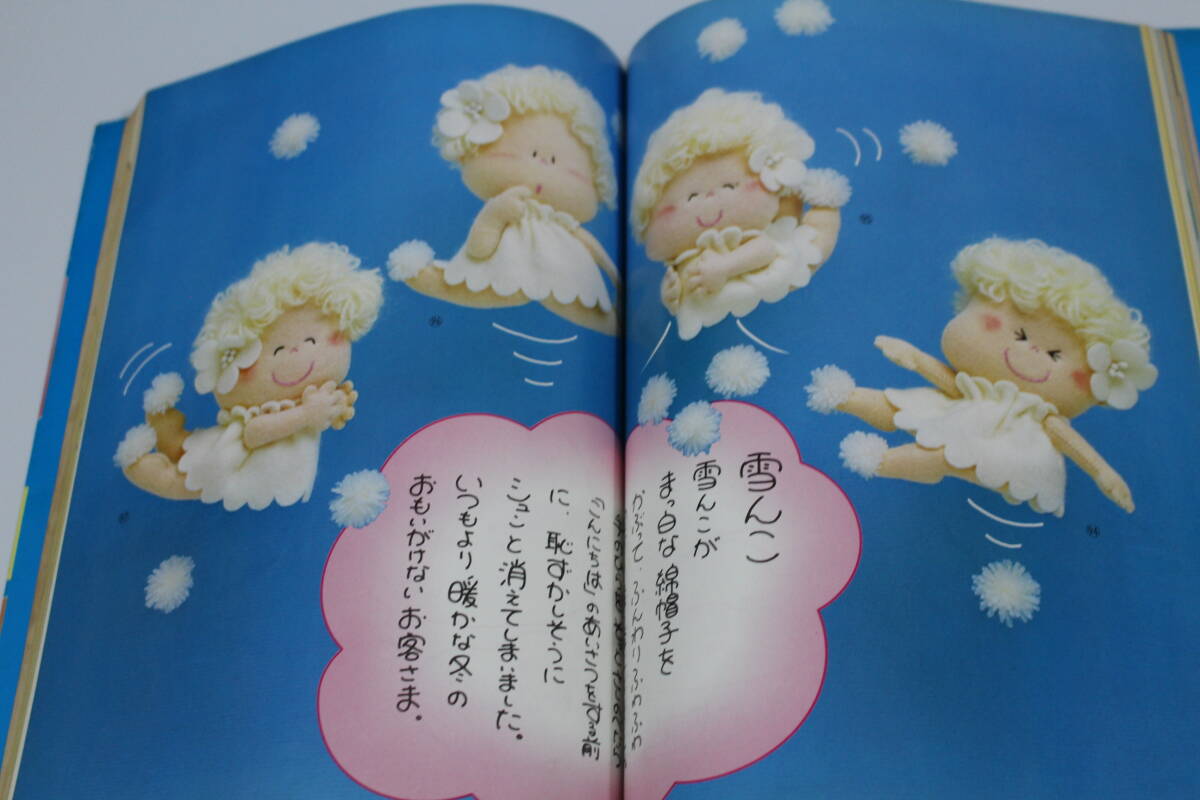 雪んこ
雪んこが
まっ白な綿帽子を
かぶって、ふんわりふわふわ
「こんにちは」のあいさつをする前
に、恥ずかしそうに
シュンと消えてしまいました。
いつもより暖かな冬の
おもいがけないお客さま。